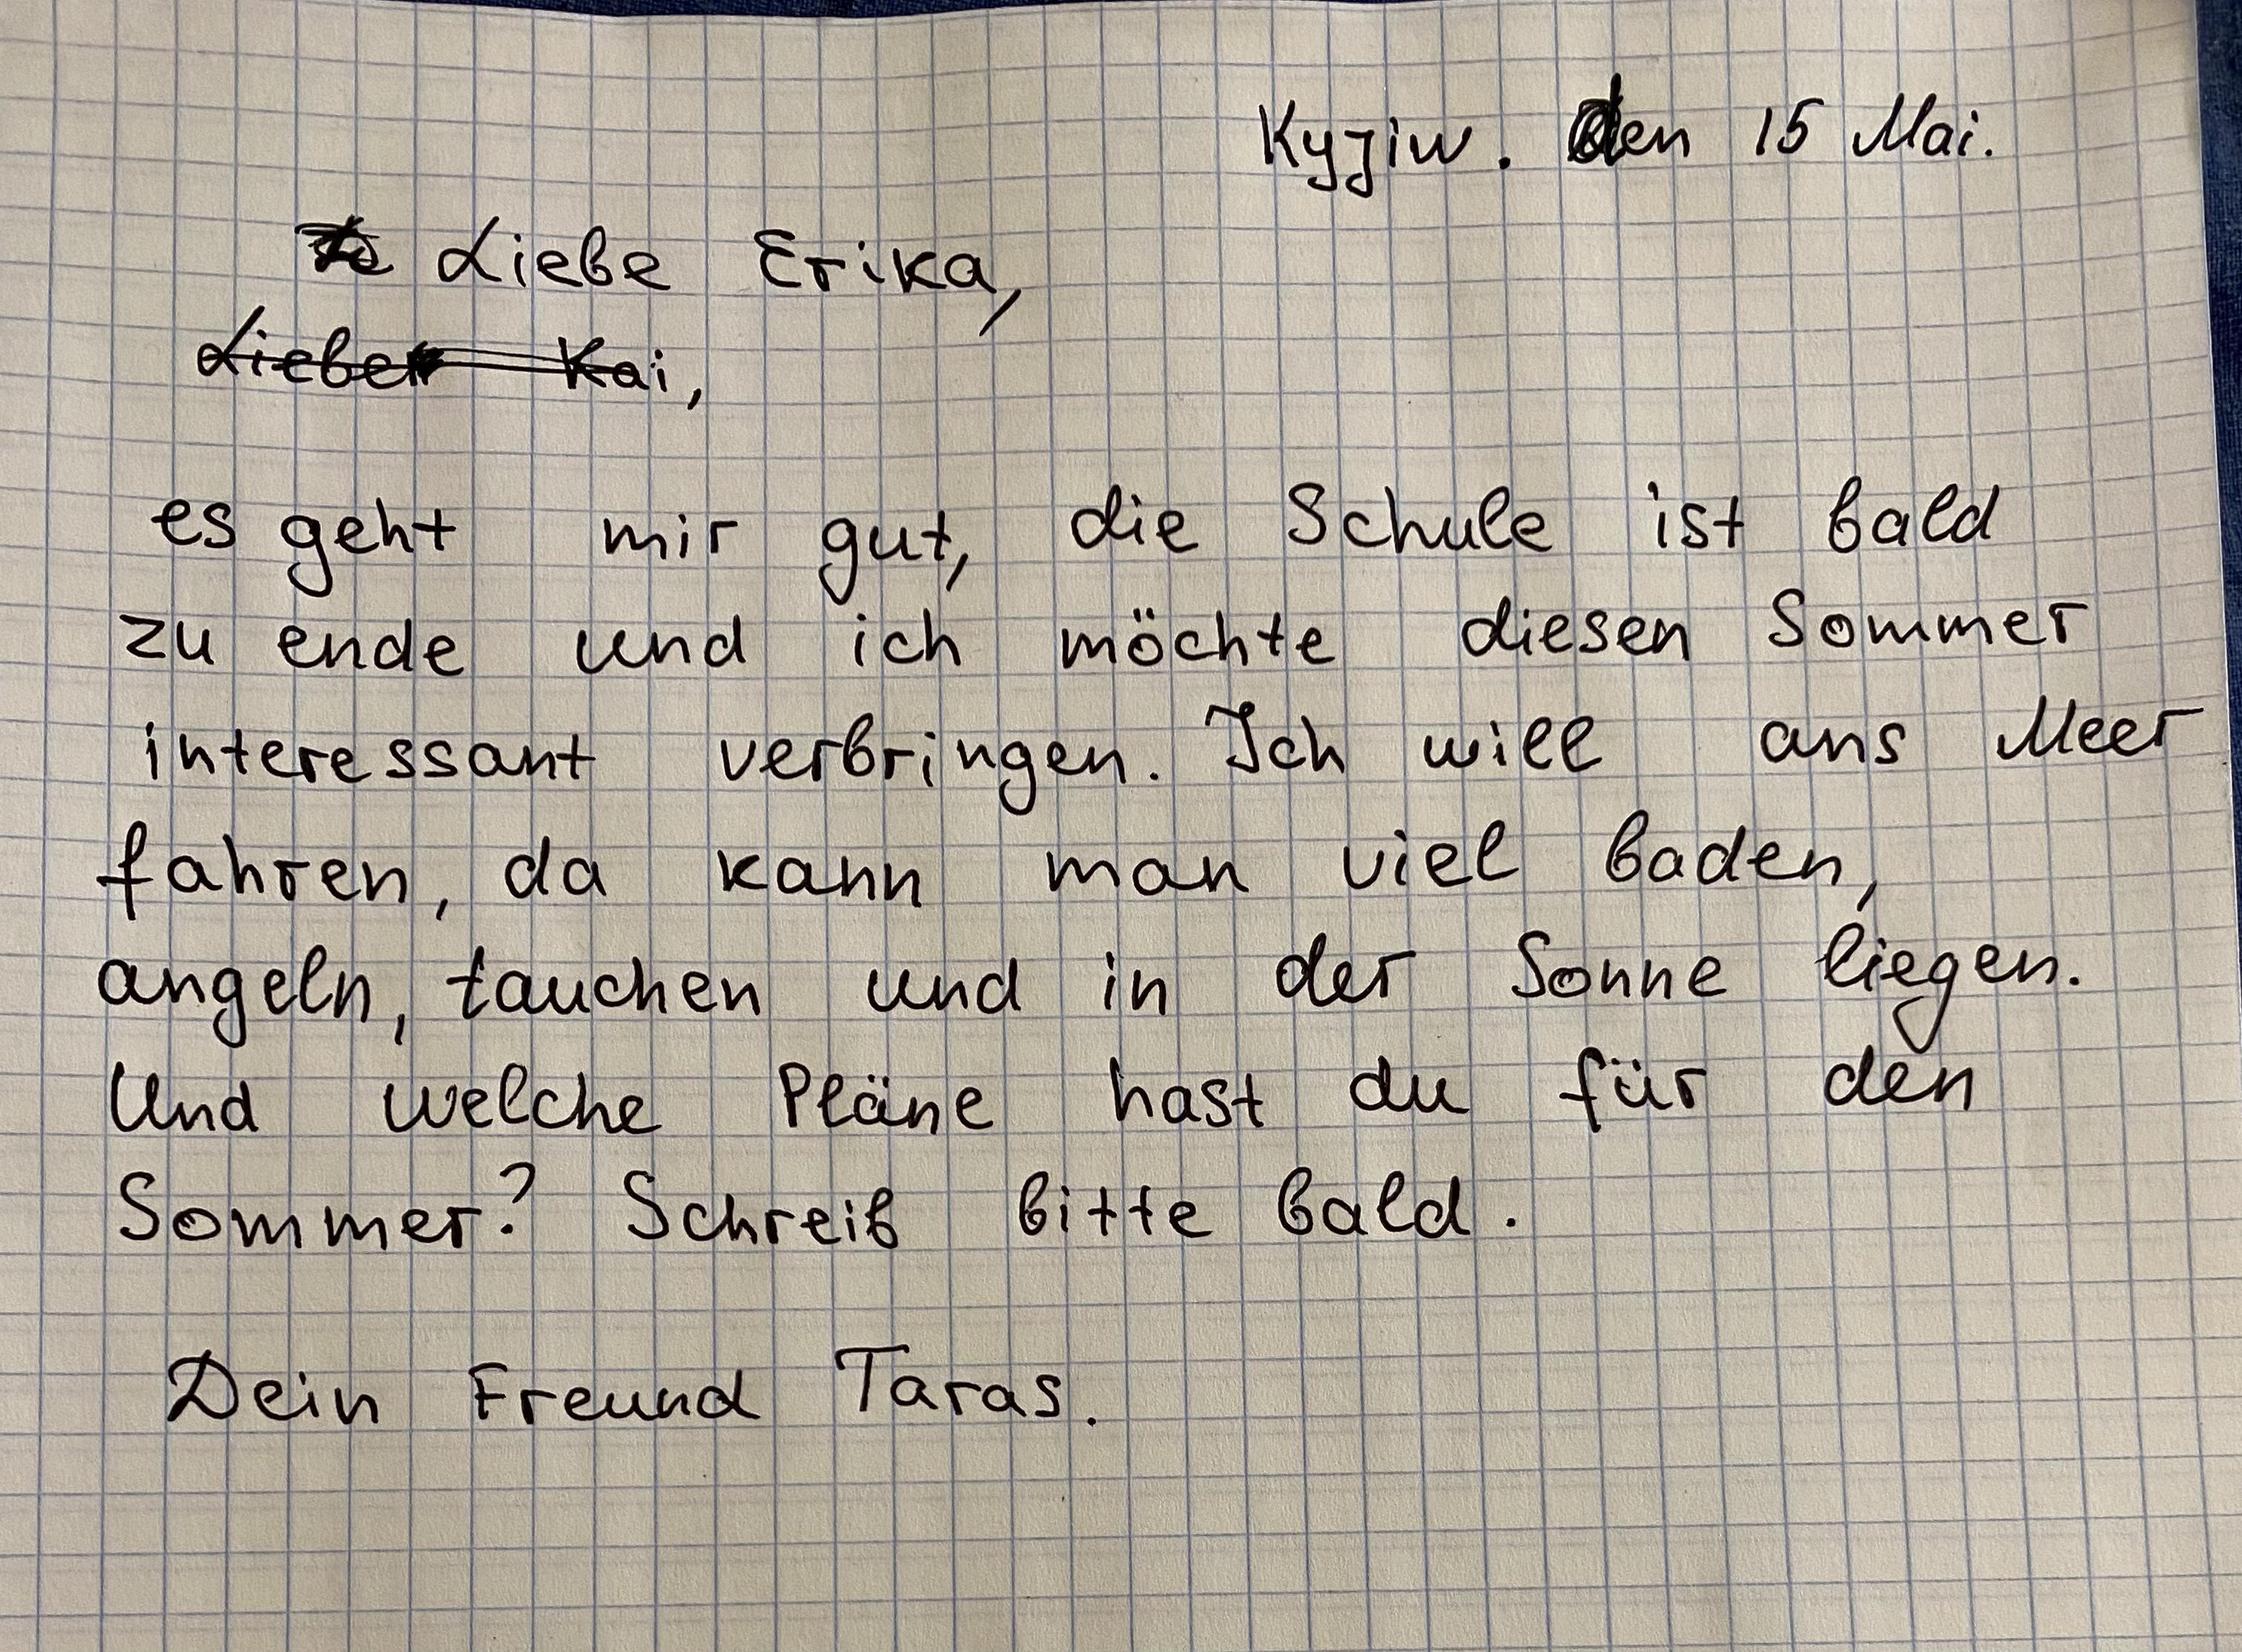 Kyjiw. den 15 Mai.
Liebe Erika,
Lieber Kai,
es geht mir gut, die Schule ist bald
zu ende und ich möchte diesen Sommer
interessant verbringen. Ich will ans Meer
fahren, da kann man viel baden,
angeln, tauchen und in der Sonne liegen.
Und welche Pläne hast du für den
Sommer? Schreib bitte bald.
Dein Freund Taras.